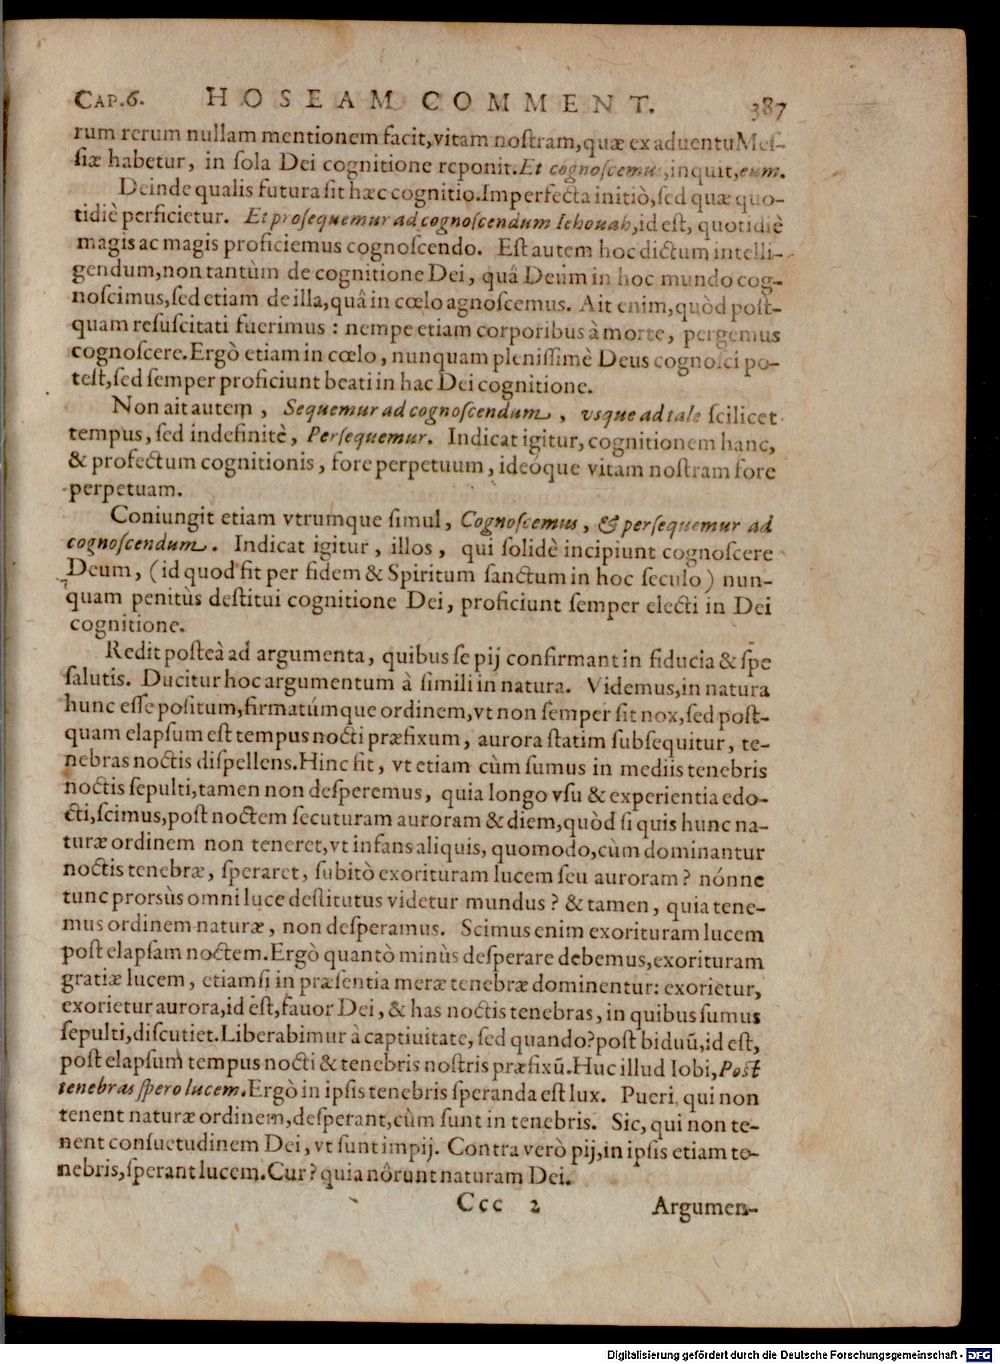 CAP. 6. HOSEAM COMMENT. 387
rum rerum nullam mentionem facit, vitam nostram, quæ ex aduentu Mes-
siæ habetur, in sola Dei cognitione reponit. Et cognoscemus, inquit, eum.
Deinde qualis futura sit hæc cognitio. Imperfecta initiò, sed quæ quo-
tidiè perficietur. Et prosequemur ad cognoscendum Iehouah, id est, quotidiè
magis ac magis proficiemus cognoscendo. Est autem hoc dictum intelli-
gendum, non tantùm de cognitione Dei, quâ Deum in hoc mundo cog-
noscimus, sed etiam de illa, quâ in cœlo agnoscemus. Ait enim, quòd post-
quam resuscitati fuerimus : nempe etiam corporibus à morte, pergemus
cognoscere. Ergò etiam in cœlo, nunquam plenissimè Deus cognosci po-
test, sed semper proficiunt beati in hac Dei cognitione.
Non ait autem, Sequemur ad cognoscendum, vsque ad tale scilicet
tempus, sed indefinitè, Persequemur. Indicat igitur, cognitionem hanc,
& profectum cognitionis, fore perpetuum, ideóque vitam nostram fore
perpetuam.
Coniungit etiam vtrumque simul, Cognoscemus, & persequemur ad
cognoscendum. Indicat igitur, illos, qui solidè incipiunt cognoscere
Deum, (id quod fit per fidem & Spiritum sanctum in hoc seculo) nun-
quam penitùs destitui cognitione Dei, proficiunt semper electi in Dei
cognitione.
Redit posteà ad argumenta, quibus se pij confirmant in fiducia & spe
salutis. Ducitur hoc argumentum à simili in natura. Videmus, in natura
hunc esse positum, firmatúmque ordinem, vt non semper sit nox, sed post-
quam elapsum est tempus nocti præfixum, aurora statim subsequitur, te-
nebras noctis dispellens. Hinc fit, vt etiam cùm sumus in mediis tenebris
noctis sepulti, tamen non desperemus, quia longo vsu & experientia edo-
cti, scimus, post noctem secuturam auroram & diem, quòd si quis hunc na-
turæ ordinem non teneret, vt infans aliquis, quomodo, cùm dominantur
noctis tenebræ, speraret, subitò exorituram lucem seu auroram? nónne
tunc prorsùs omni luce destitutus videtur mundus? & tamen, quia tene-
mus ordinem naturæ, non desperamus. Scimus enim exorituram lucem
post elapsam noctem. Ergò quantò minùs desperare debemus, exorituram
gratiæ lucem, etiamsi in præsentia meræ tenebræ dominentur: exorietur,
exorietur aurora, id est, fauor Dei, & has noctis tenebras, in quibus sumus
sepulti, discutiet. Liberabimur à captiuitate, sed quando? post biduū, id est,
post elapsum tempus nocti & tenebris nostris præfixū. Huc illud Iobi, Post
tenebras spero lucem. Ergò in ipsis tenebris speranda est lux. Pueri, qui non
tenent naturæ ordinem, desperant, cùm sunt in tenebris. Sic, qui non te-
nent consuetudinem Dei, vt sunt impij. Contra verò pij, in ipsis etiam te-
nebris, sperant lucem. Cur? quia nôrunt naturam Dei.
Ccc 2 Argumen-
Digitalisierung gefördert durch die Deutsche Forschungsgemeinschaft - DFG